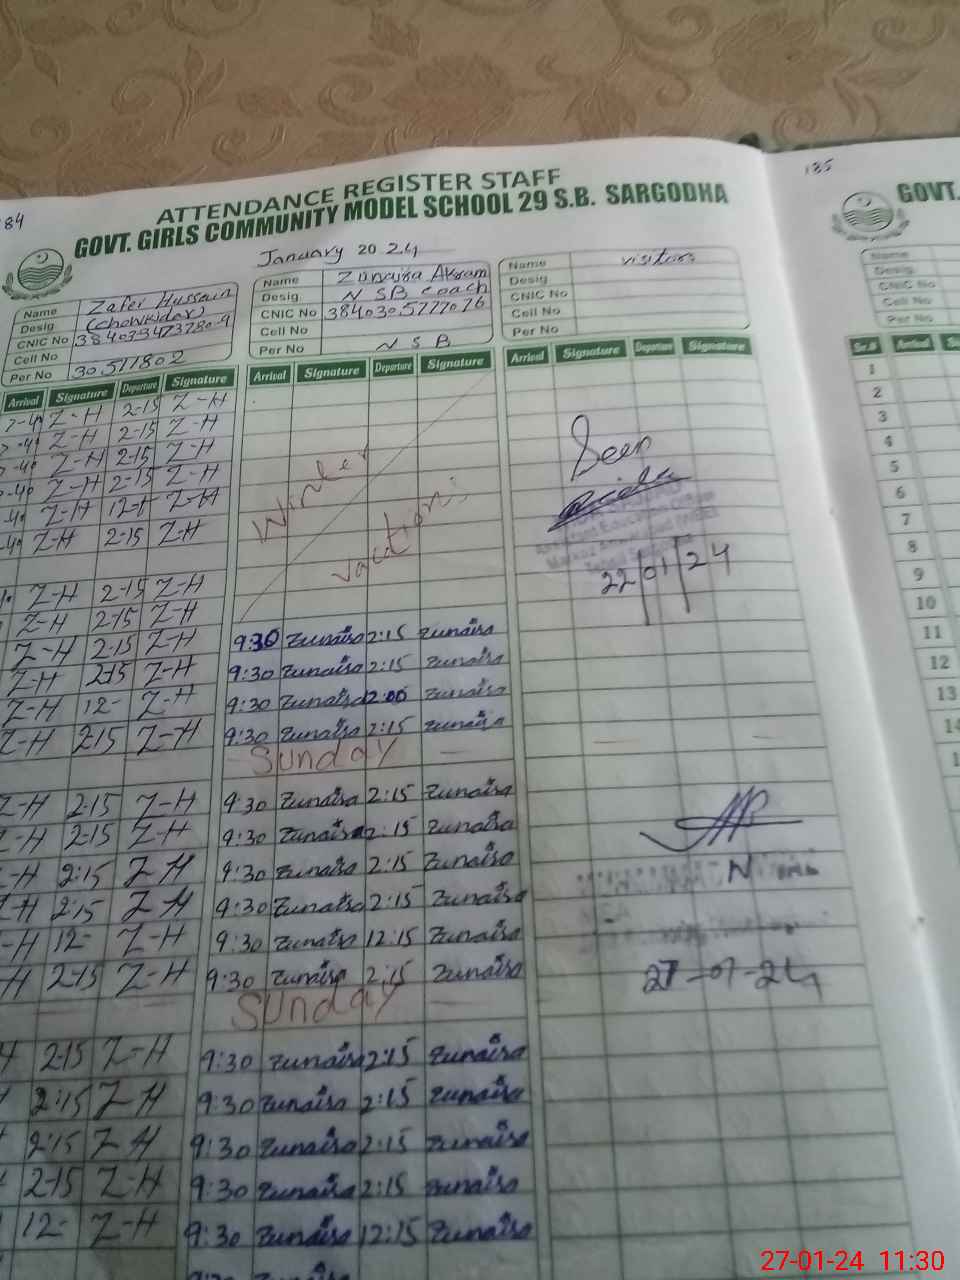 184
135
ATTENDANCE REGISTER STAFF
GOVT. GIRLS COMMUNITY MODEL SCHOOL 29 S.B. SARGODHA
GOVT.
January 2024
Name Zafer Hussain
Desig (chowkidar)
CNIC No
Cell No
Per No 30511802
Name Zunaira Akram
Desig NSB coach
CNIC No 3840305777076
Cell No
Per No NSB
Name visitors
Desig
CNIC No
Cell No
Per No
Name
Desig
CNIC No
Cell No
Per No
Arrival Signature Departure Signature Arrival Signature Departure Signature Arrival Signature Departure Signature
Sr.# Arrival
Z-H 2-15 Z-H
Z-H 2-15 Z-H
Z-H 2-15 Z-H
Z-H 2-15 Z-H
Z-H Z-H
Z-H 2-15 Z-H
Winter
vacations
Seen
22/01/24
Z-H 2-15 Z-H
Z-H 2-15 Z-H
Z-H 2-15 Z-H 9:30 Zunaira 2:15 Zunaira
Z-H 2-15 Z-H 9:30 Zunaira 2:15 Zunaira
Z-H 12- Z-H 9:30 Zunaira 12:00 Zunaira
Z-H 2:15 Z-H 9:30 Zunaira 2:15 Zunaira
Sunday
Z-H 2-15 Z-H 9:30 Zunaira 2:15 Zunaira
Z-H 2-15 Z-H 9:30 Zunaira 2:15 Zunaira
Z-H 2:15 Z-H 9:30 Zunaira 2:15 Zunaira
Z-H 2:15 Z-H 9:30 Zunaira 2:15 Zunaira
Z-H 12- Z-H 9:30 Zunaira 12:15 Zunaira
Z-H 2-15 Z-H 9:30 Zunaira 2:15 Zunaira
27-01-24
Sunday
2-15 Z-H 9:30 Zunaira 2:15 Zunaira
2:15 Z-H 9:30 Zunaira 2:15 Zunaira
2:15 Z-H 9:30 Zunaira 2:15 Zunaira
2-15 Z-H 9:30 Zunaira 2:15 Zunaira
12- Z-H 9:30 Zunaira 12:15 Zunaira
1
2
3
4
5
6
7
8
9
10
11
12
13
27-01-24 11:30